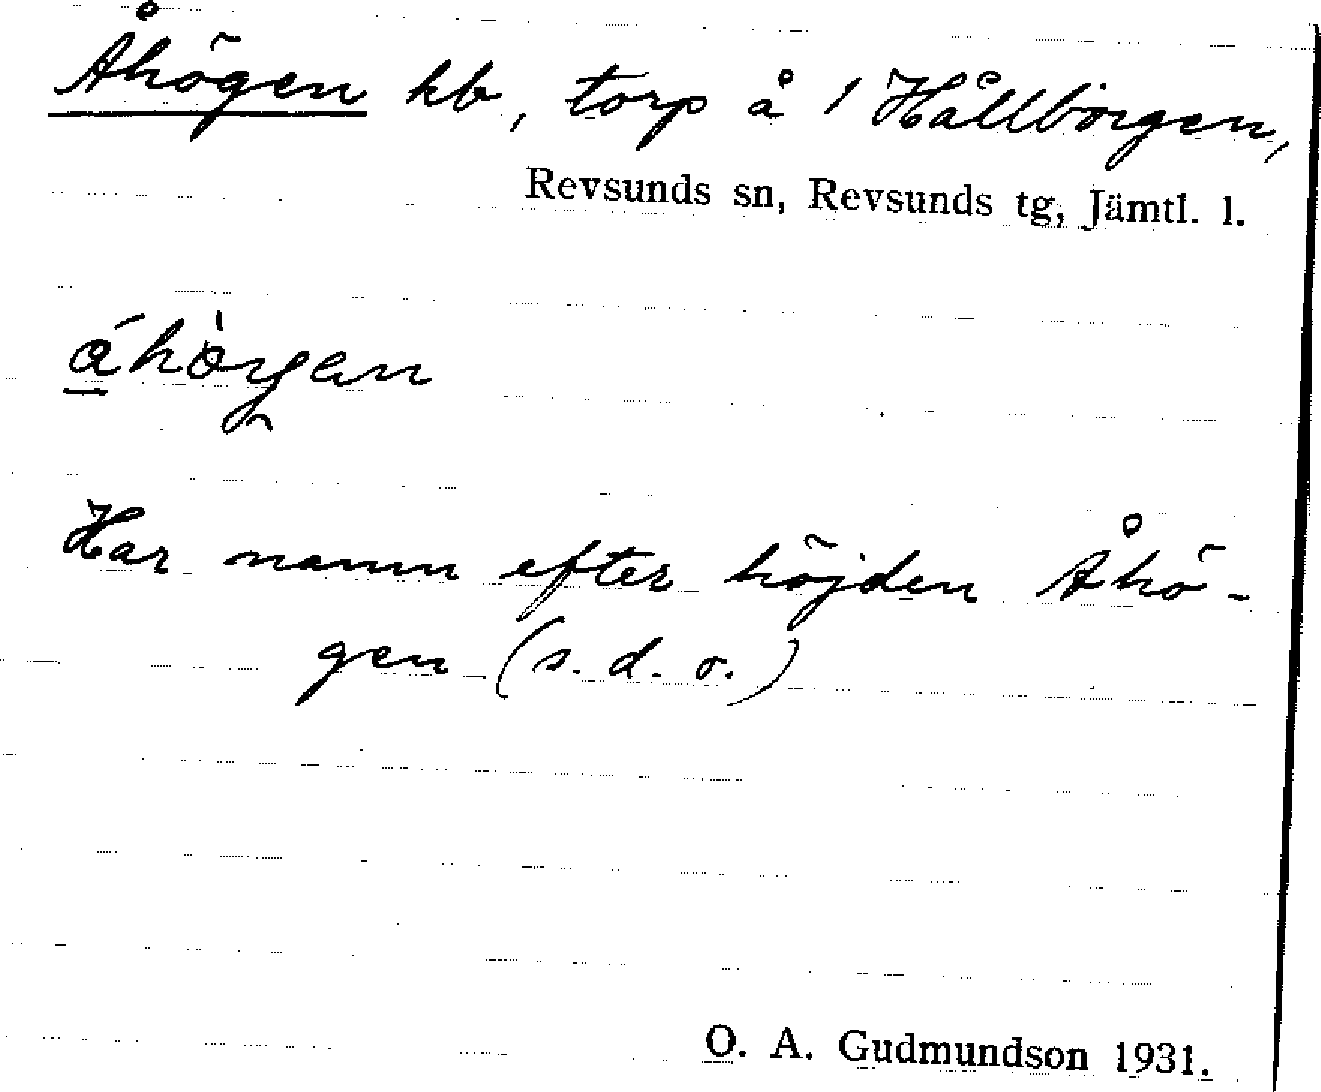 Åhögen kb, torp å 1 Hållbörgen,
Revsunds sn, Revsunds tg, Jämtl. l.
Har namn efter höjden Åhö-
gen (s. d. o.)
O. A. Gudmundson 1931.